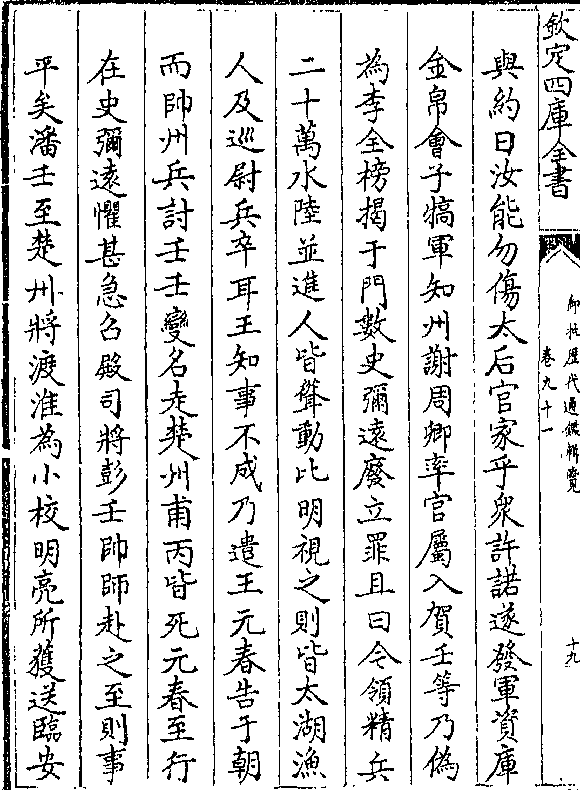 欽定四庫全書
御批歷代通鑑輯覽
卷九十一
十九
與約曰汝能勿傷太后官家乎衆許諾遂發軍資庫
金帛會子犒軍知州謝周卿率官屬入賀壬等乃偽
為李全榜揭于門數史彌遠廢立罪且曰今領精兵
二十萬水陸並進人皆聳動比明視之則皆太湖漁
人及巡尉兵卒耳王知事不成乃遣王元春告于朝
而帥州兵討壬壬變名走楚州甫丙皆死元春至行
在史彌遠懼甚急召殿司將彭壬帥師赴之至則事
平矣潘壬至楚州將渡淮為小校明亮所獲送臨安